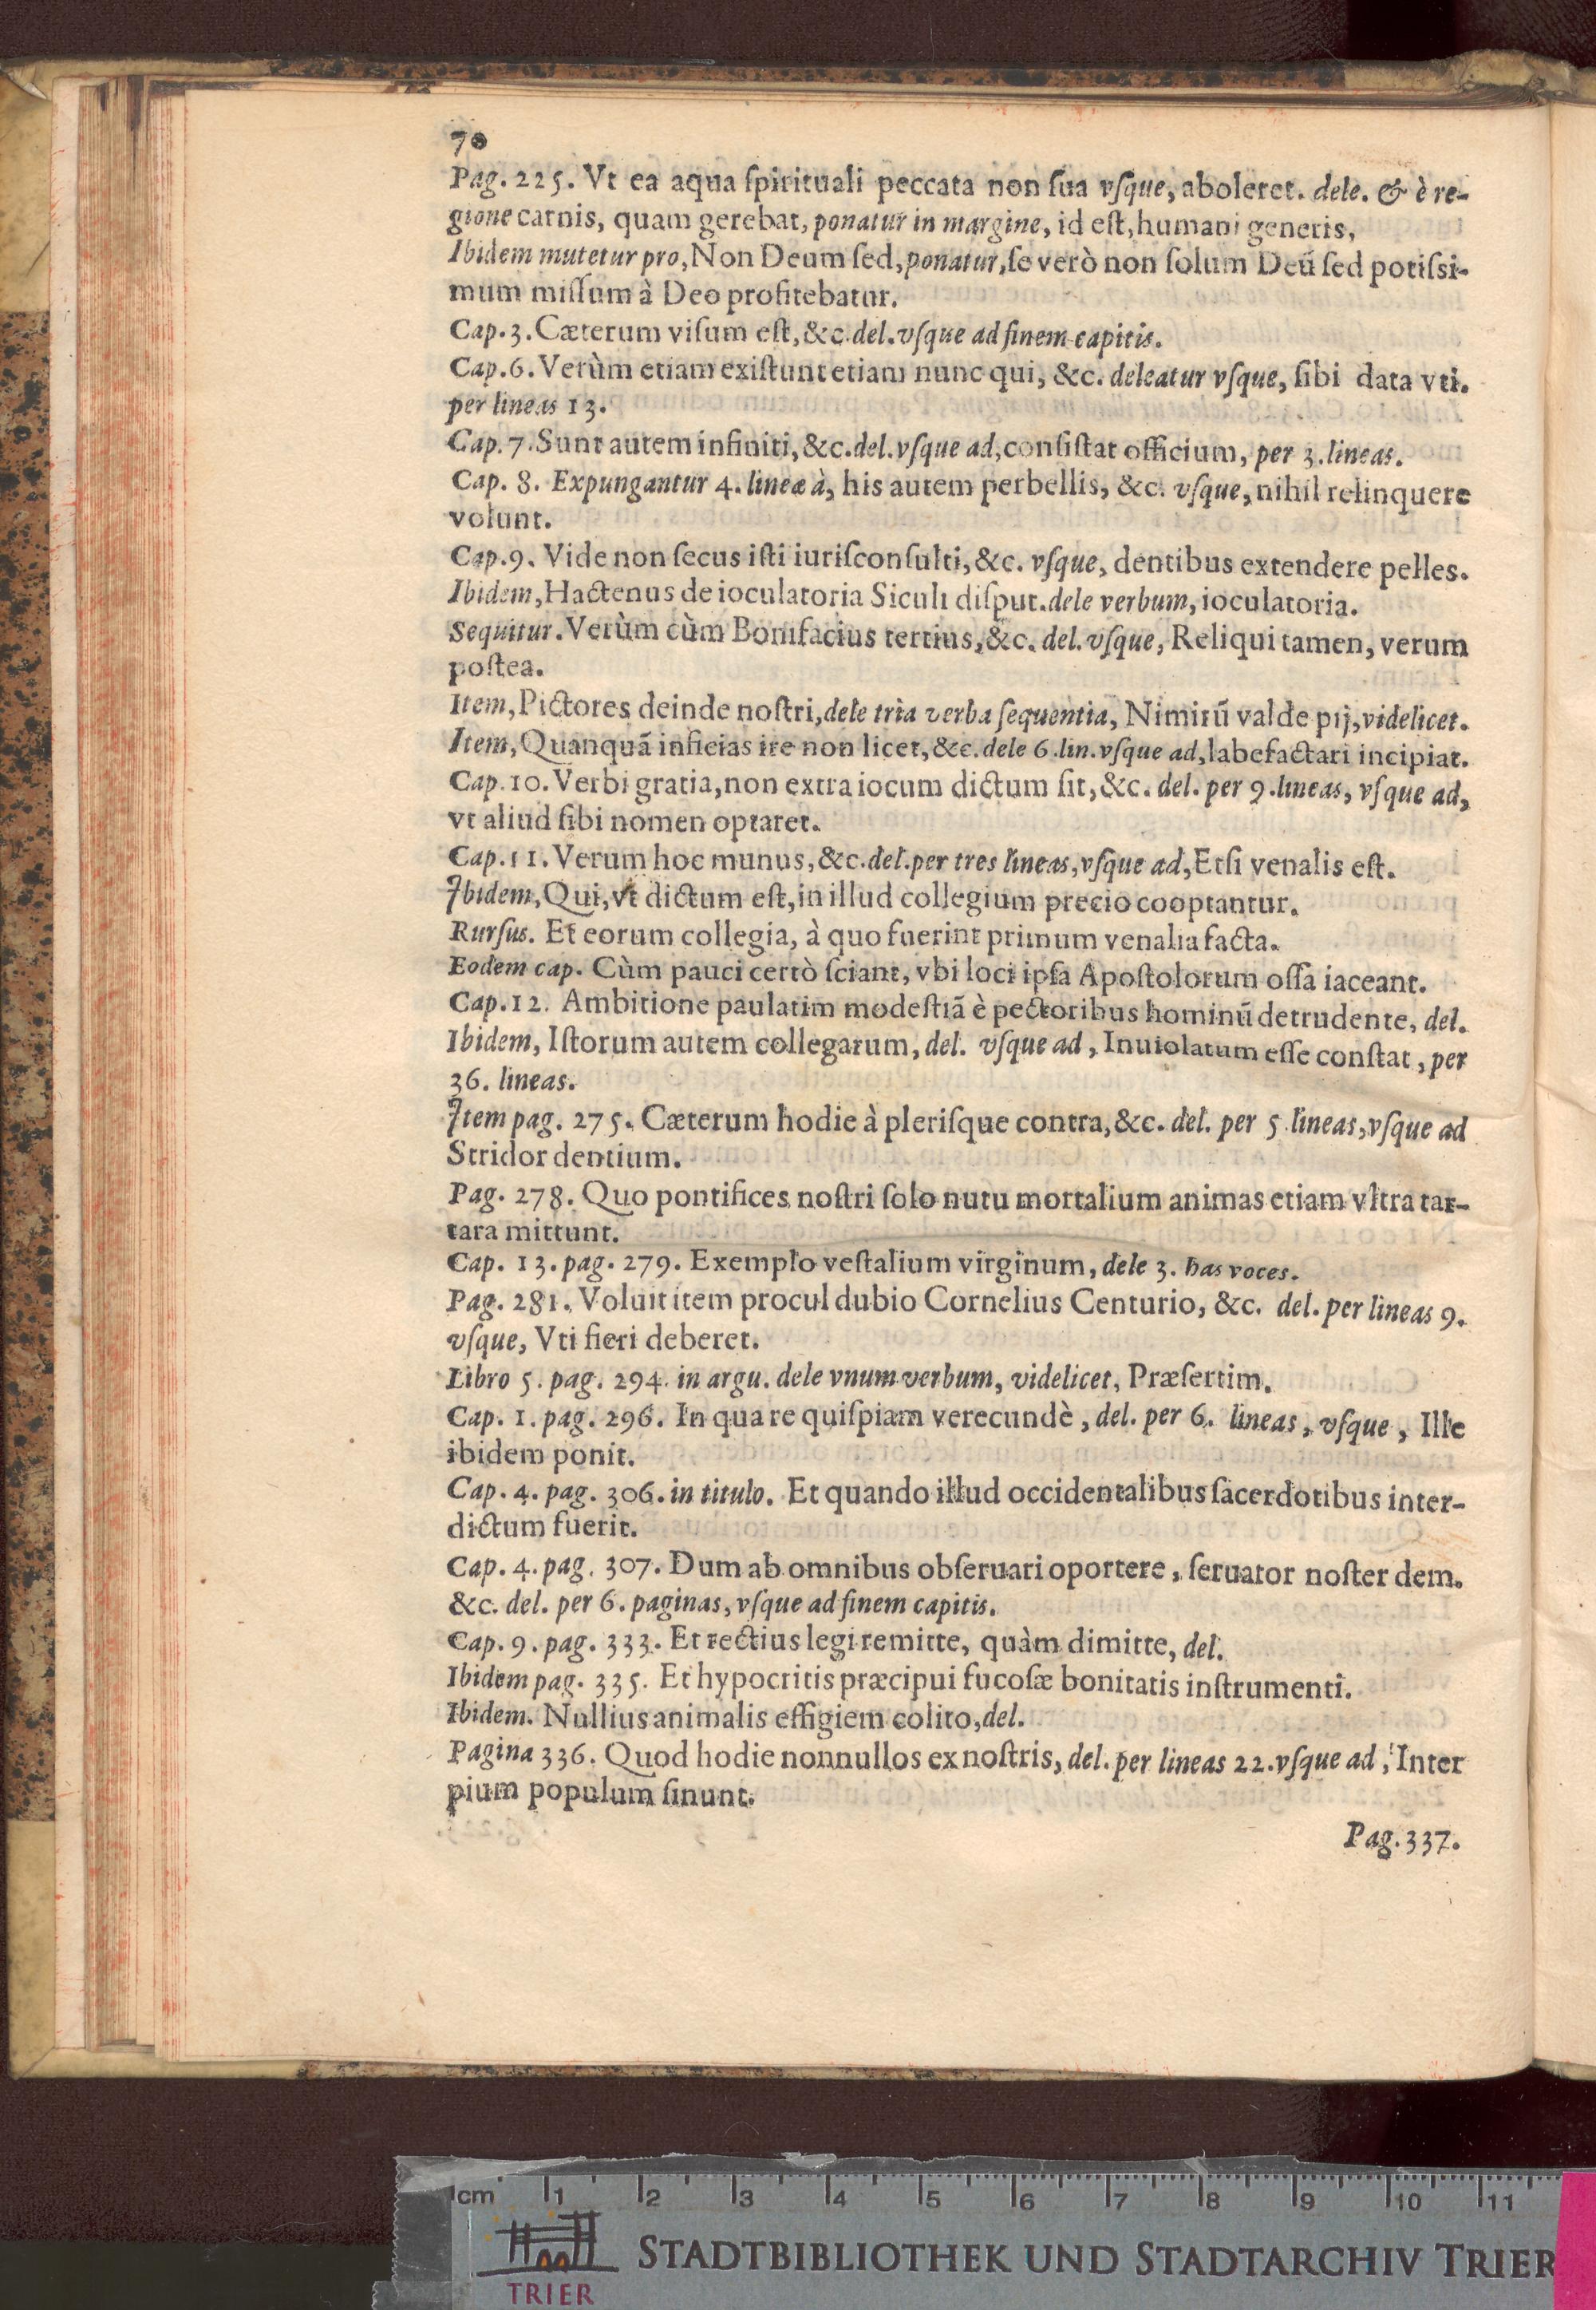 70
Pag. 225. Vt ea aqua ſpirituali peccata non ſua vſque, aboleret. dele. & è re-
gione carnis, quam gerebat, ponatur in margine, id eſt, humani generis,
Ibidem mutetur pro, Non Deum ſed, ponatur, ſe verò non ſolum Deũ ſed potiſsi-
mum miſſum à Deo profitebatur.
Cap. 3. Cæterum viſum eſt, &c. del. vſque ad finem capitis.
Cap. 6. Verùm etiam exiſtunt etiam nunc qui, &c. deleatur vſque, ſibi data vti.
per lineas 13.
Cap. 7. Sunt autem infiniti, &c. del. vſque ad, conſiſtat officium, per 3. lineas.
Cap. 8. Expungantur 4. lineæ à, his autem perbellis, &c. vſque, nihil relinquere
volunt.
Cap. 9. Vide non ſecus iſti iuriſconſulti, &c. vſque, dentibus extendere pelles.
Ibidem, Hactenus de ioculatoria Siculi diſput. dele verbum, ioculatoria.
Sequitur. Verùm cùm Bonifacius tertius, &c. del. vſque, Reliqui tamen, verum
poſtea.
Item, Pictores deinde noſtri, dele tria verba ſequentia, Nimirũ valde pij, videlicet.
Item, Quanquã inficias ire non licet, &c. dele 6. lin. vſque ad, labefactari incipiat.
Cap. 10. Verbi gratia, non extra iocum dictum ſit, &c. del. per 9. lineas, vſque ad,
vt aliud ſibi nomen optaret.
Cap. 11. Verum hoc munus, &c. del. per tres lineas, vſque ad, Etſi venalis eſt.
Ibidem, Qui, vt dictum eſt, in illud collegium precio cooptantur.
Rurſus. Et eorum collegia, à quo fuerint primum venalia facta.
Eodem cap. Cùm pauci certò ſciant, vbi loci ipſa Apoſtolorum oſſa iaceant.
Cap. 12. Ambitione paulatim modeſtiã è pectoribus hominũ detrudente, del.
Ibidem, Iſtorum autem collegarum, del. vſque ad, Inuiolatum eſſe conſtat, per
36. lineas.
Item pag. 275. Cæterum hodie à pleriſque contra, &c. del. per 5 lineas, vſque ad
Stridor dentium.
Pag. 278. Quo pontifices noſtri ſolo nutu mortalium animas etiam vltra tar-
tara mittunt.
Cap. 13. pag. 279. Exemplo veſtalium virginum, dele 3. has voces.
Pag. 281. Voluit item procul dubio Cornelius Centurio, &c. del. per lineas 9.
vſque, Vti fieri deberet.
Libro 5. pag. 294. in argu. dele vnum verbum, videlicet, Præſertim.
Cap. 1. pag. 296. In qua re quiſpiam verecundè, del. per 6. lineas, vſque, Ille
ibidem ponit.
Cap. 4. pag. 306. in titulo. Et quando illud occidentalibus ſacerdotibus inter-
dictum fuerit.
Cap. 4. pag. 307. Dum ab omnibus obſeruari oportere, ſeruator noſter dem.
&c. del. per 6. paginas, vſque ad finem capitis.
Cap. 9. pag. 333. Et rectius legi remitte, quàm dimitte, del.
Ibidem pag. 335. Et hypocritis præcipui fucoſæ bonitatis inſtrumenti.
Ibidem. Nullius animalis effigiem colito, del.
Pagina 336. Quod hodie nonnullos ex noſtris, del. per lineas 22. vſque ad, Inter
pium populum ſinunt.
Pag. 337.
cm 1 2 3 4 5 6 7 8 9 10 11
TRIER
STADTBIBLIOTHEK UND STADTARCHIV TRIER